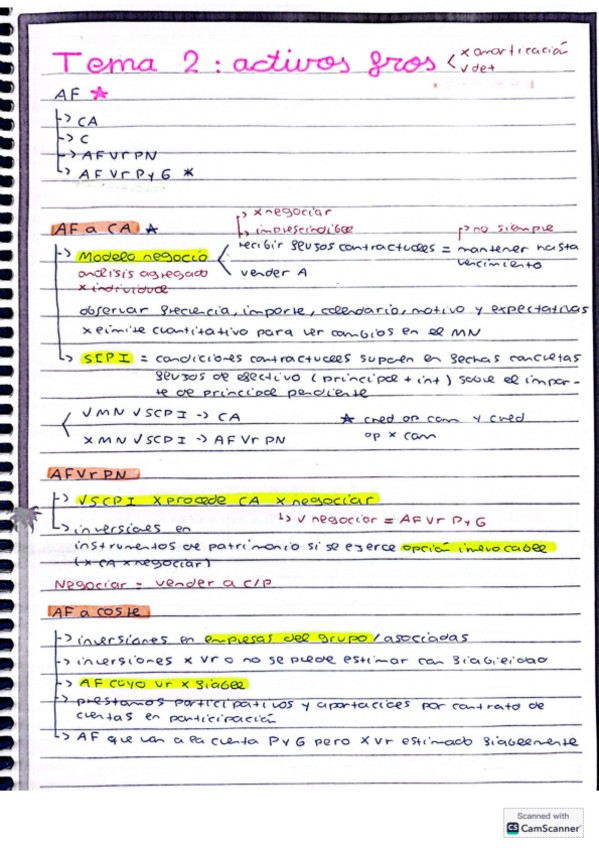 Tema 2: activos fros
x amortización
v det
AF ★
↳ CA
↳ C
↳ AF Vr PN
↳ AF Vr PyG *
AF a CA ★
↳ x negociar
↳ imprescindible
↳ no siempre
↳ Modelo negocio
recibir flujos contractuales = mantener hasta
vencimiento
análisis agregado
x individual
vender A
observar frecuencia, importe, calendario, motivo y expectativas
x límite cuantitativo para ver cambios en el MN
↳ SCPI = condiciones contractuales suponen en fechas concretas
flujos de efectivo (principal + int) sobre el impor-
te de principal pendiente
√ MN √ SCPI -> CA
★ cred op com y cred
op x com
X MN √ SCPI -> AF Vr PN
AF Vr PN
↳ √ SCPI X procede CA X negociar
↳ v negociar = AF Vr PyG
↳ inversiones en
instrumentos de patrimonio si se ejerce opción irrevocable
(x CA x negociar)
Negociar = vender a c/p
AF a coste
↳ inversiones en empresas del grupo/asociadas
↳ inversiones x Vr o no se puede estimar con fiabilidad
↳ AF cuyo Vr x fiable
↳ préstamos participativos y aportaciones por contrato de
cuentas en participación
↳ AF que van a la cuenta PyG pero X Vr estimado fiablemente
Scanned with
CS CamScanner